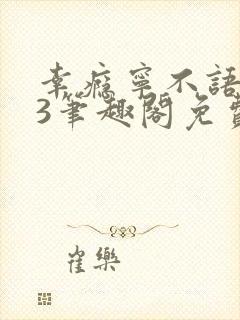 幸瘾宁不語
3筆趣閣免費
崔樂